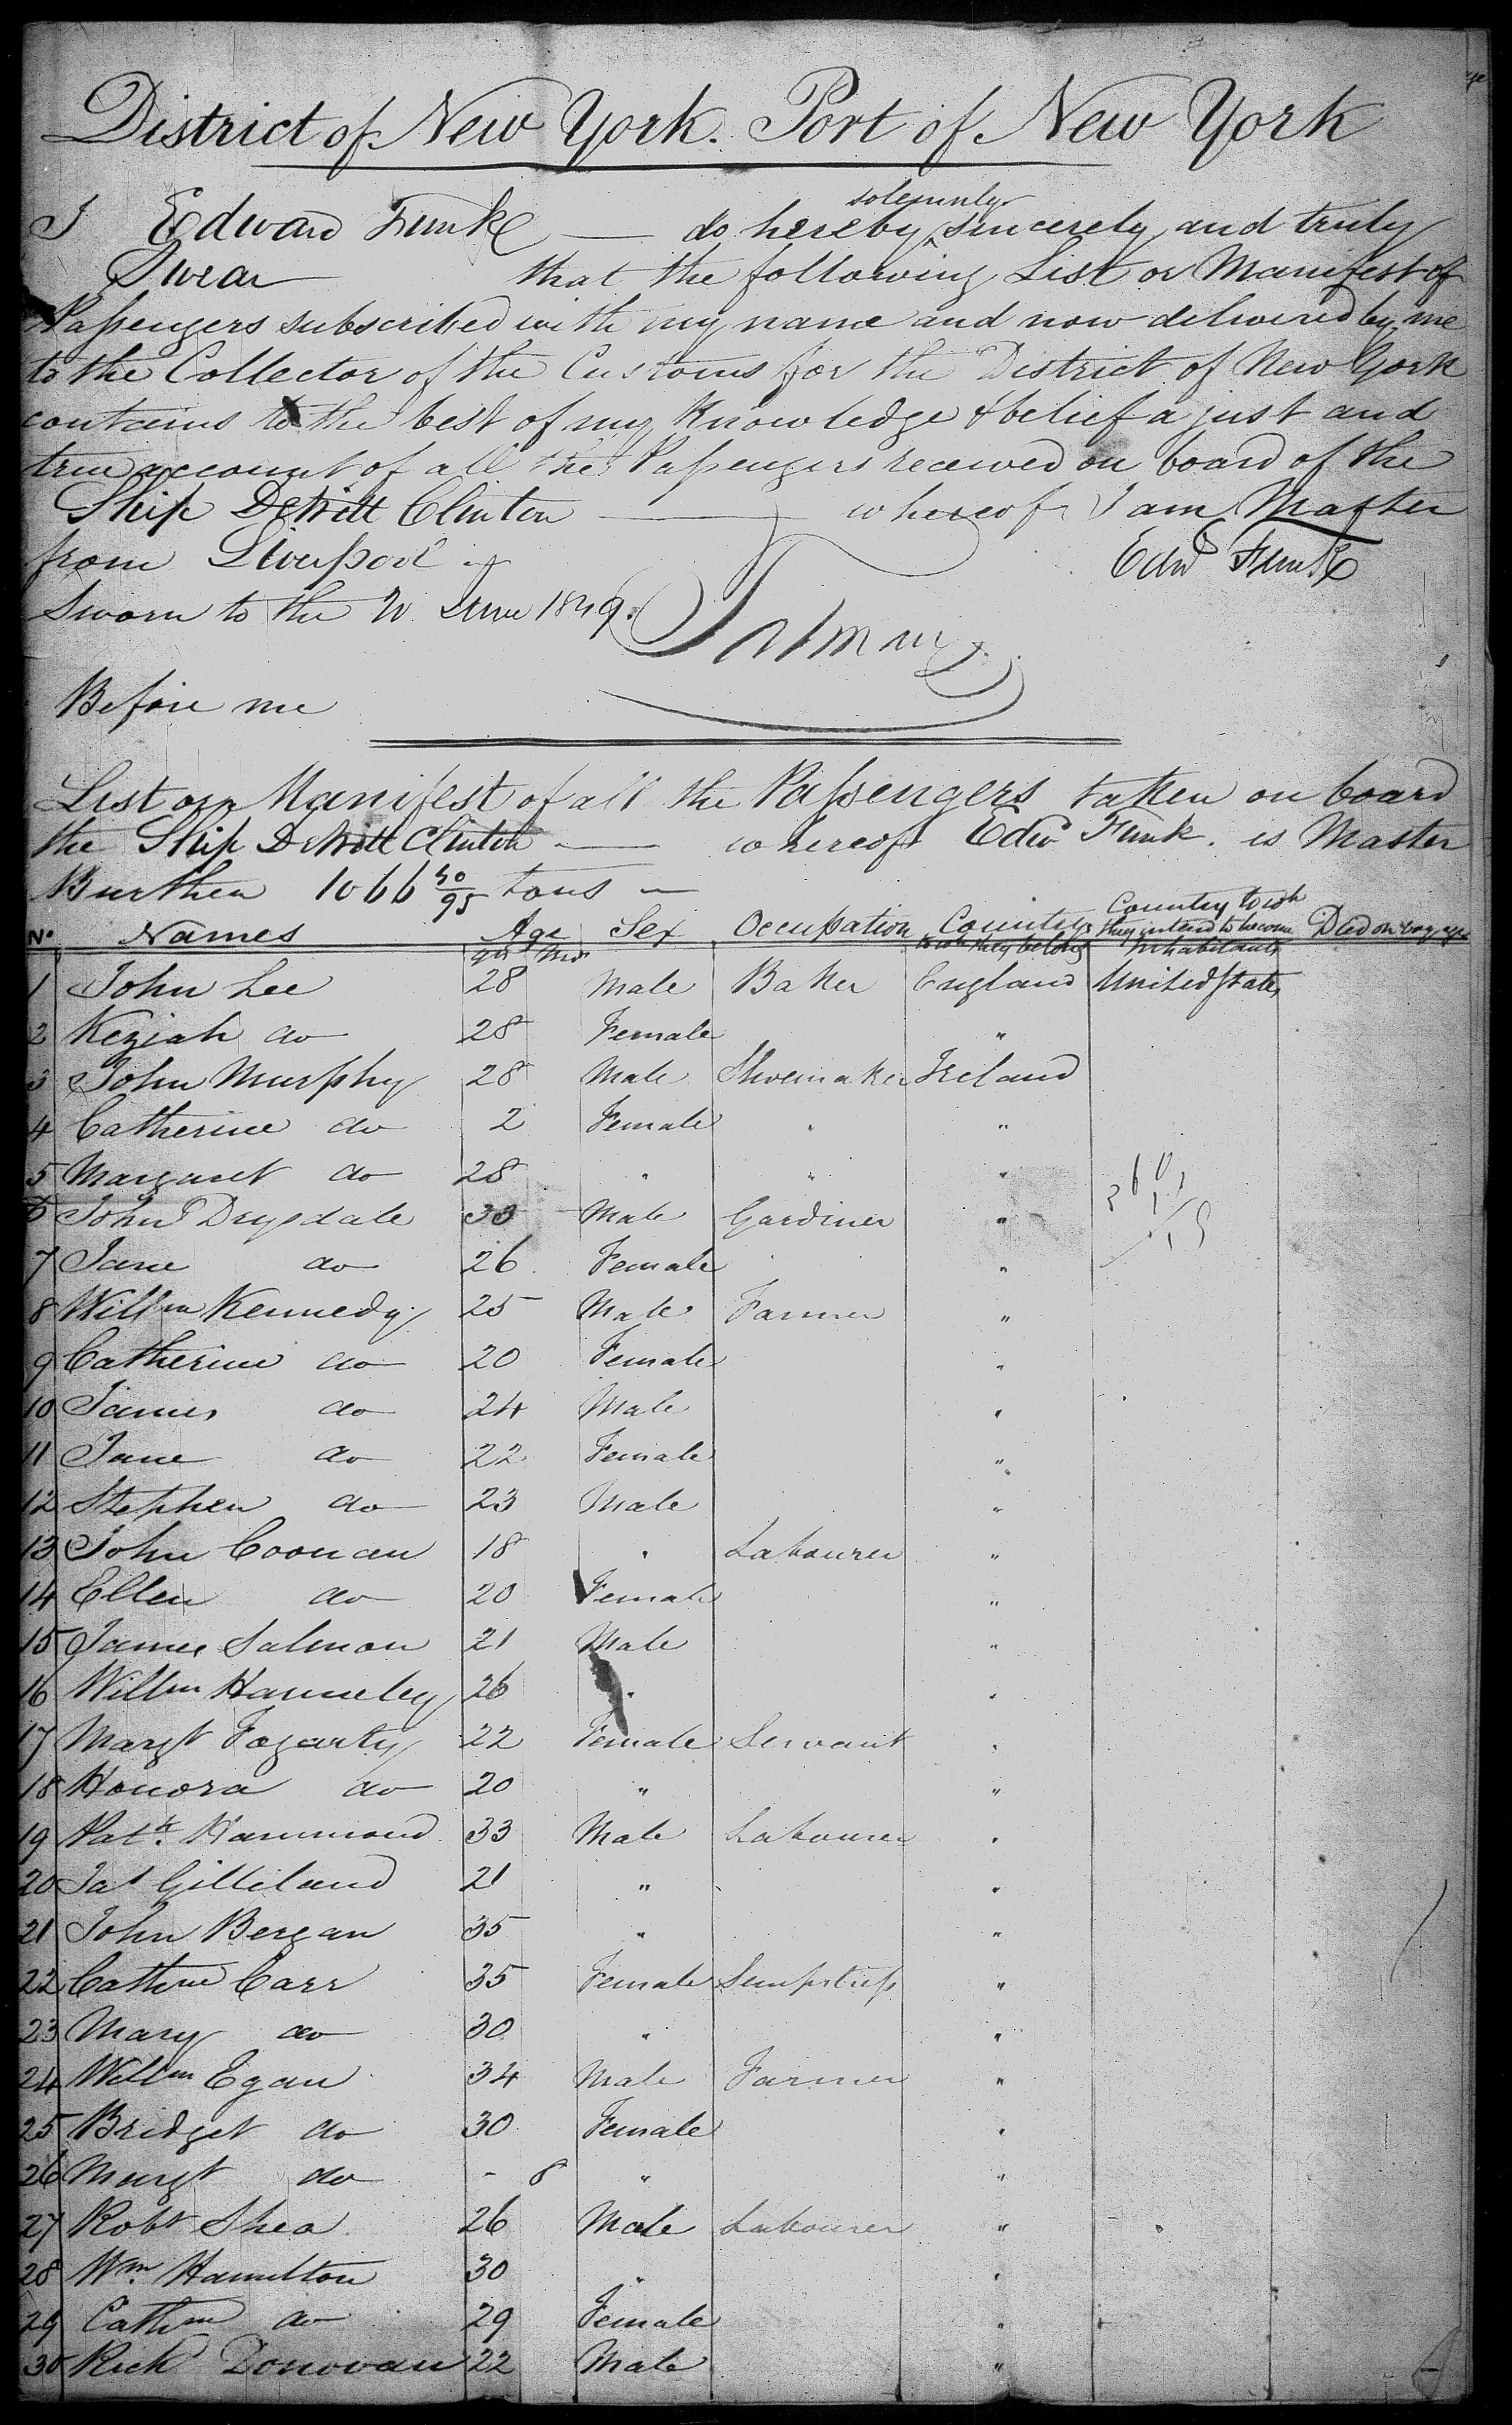 District of New York. Port of New York
solemnly
I Edward Funk — do hereby sincerely and truly
Swear that the following List or Manifest of
Passengers subscribed with my name and now delivered by me
to the Collector of the Customs for the District of New York
contains to the best of my Knowledge & belief a just and
true account of all the Passengers received on board of the
Ship DeWitt Clinton — whereof I am Master
from Liverpool
Edwd Funk
Sworn to the 20 June 1849.
Before me
List or Manifest of all the Passengers taken on board
the Ship DeWitt Clinton — whereof Edwd Funk. is Master
Burthen 1066 50/95 tons —
No. Names Age Sex Occupation Country Country to wh they intend to become Inhabitants Died on voyage
yrs Mos to wh they belong
1 John Lee 28 Male Baker England United States
2 Keziah do 28 Female "
3 John Murphy 28 Male Shoemaker Ireland
4 Catherine do 2 Female " "
5 Margaret do 28 " " "
6 John Drysdale 33 Male Gardiner "
7 Jane do 26 Female "
8 Willm Kennedy 25 Male Farmer "
9 Catherine do 20 Female "
10 James do 24 Male "
11 Jane do 22 Female "
12 Stephen do 23 Male "
13 John Coonan 18 " Labourer "
14 Ellen do 20 Female "
15 James Salmon 21 Male "
16 Willm Hanneley 26 " "
17 Margt Fogarty 22 Female Servant "
18 Honora do 20 " "
19 Patk. Hammond 33 Male Labourer "
20 Jas Gilliland 21 " "
21 John Bergan 35 " "
22 Cathne Carr 35 Female Sempstress "
23 Mary do 30 " "
24 Willm Egan 34 Male Farmer "
25 Bridget do 30 Female "
26 Margt do - 8 " "
27 Robt Shea 26 Male Labourer "
28 Wm. Hamilton 30 " "
29 Cathne do 29 Female "
30 Rich Donovan 22 Male "